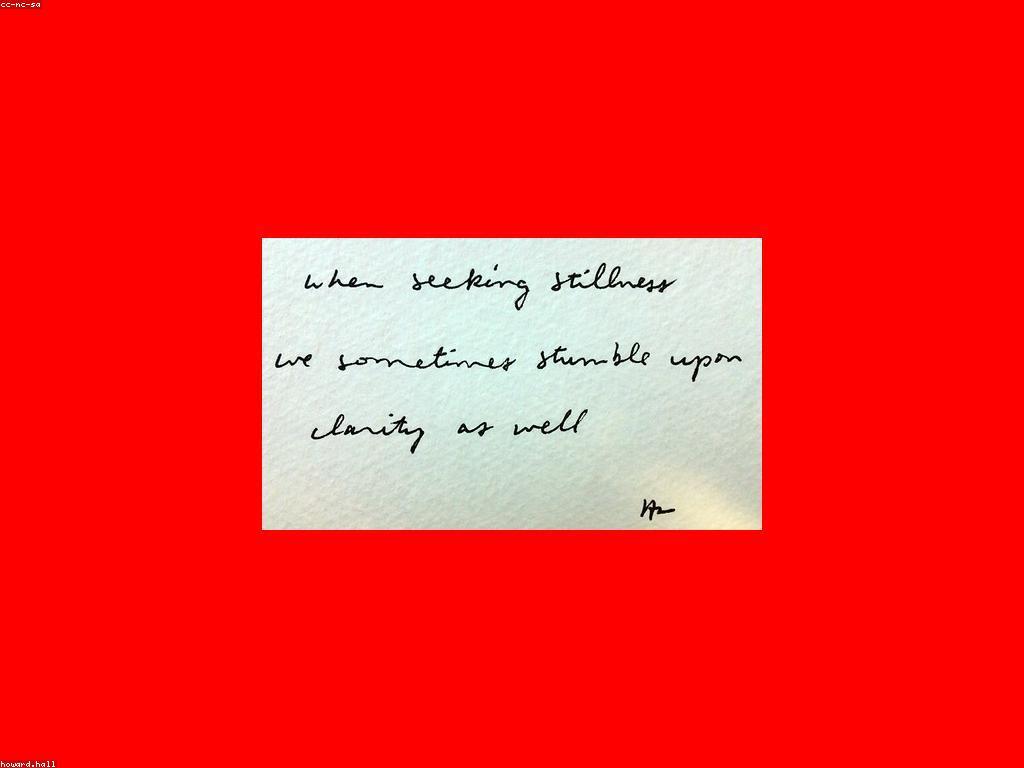 cc-nc-sa
when seeking stillness
we sometimes stumble upon
clarity as well
howard.hall